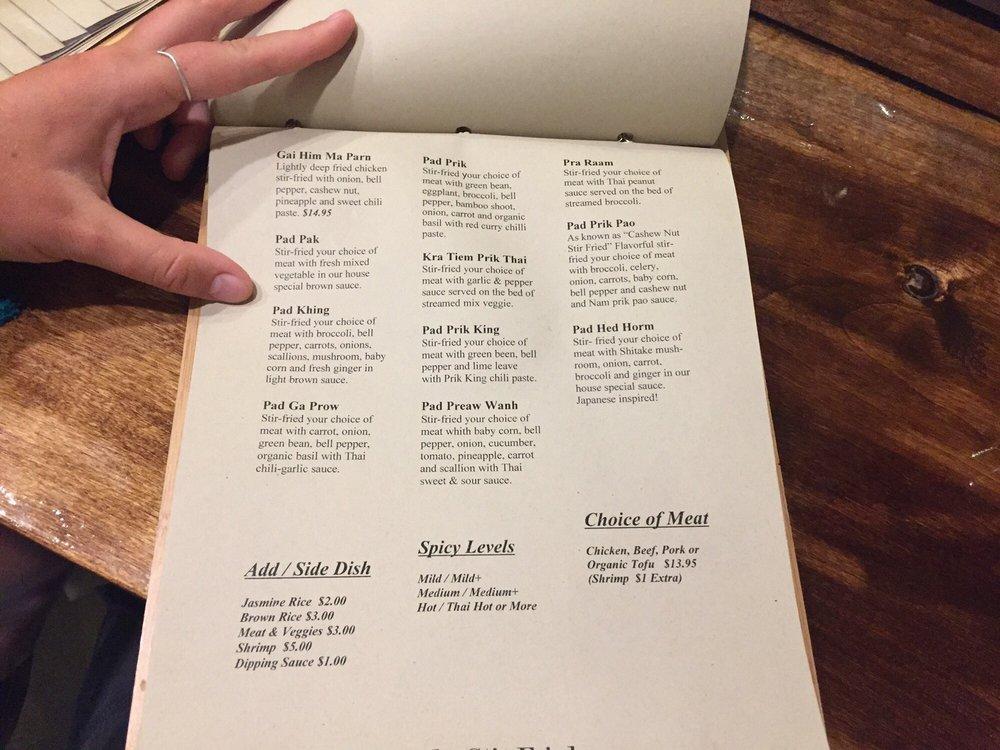 Gai Him Ma Parn
Lightly deep fried chicken
stir-fried with onion, bell
pepper, cashew nut,
pineapple and sweet chili
paste. $14.95
Pad Pak
Stir-fried your choice of
meat with fresh mixed
vegetable in our house
special brown sauce.
Pad Khing
Stir-fried your choice of
meat with broccoli, bell
pepper, carrots, onions,
scallions, mushroom, baby
corn and fresh ginger in
light brown sauce.
Pad Ga Prow
Stir-fried your choice of
meat with carrot, onion,
green bean, bell pepper,
organic basil with Thai
chili-garlic sauce.
Pad Prik
Stir-fried your choice of
meat with green bean,
eggplant, broccoli, bell
pepper, bamboo shoot,
onion, carrot and organic
basil with red curry chilli
paste.
Kra Tiem Prik Thai
Stir-fried your choice of
meat with garlic & pepper
sauce served on the bed of
streamed mix veggie.
Pad Prik King
Stir-fried your choice of
meat with green been, bell
pepper and lime leave
with Prik King chili paste.
Pad Preaw Wanh
Stir-fried your choice of
meat whith baby corn, bell
pepper, onion, cucumber,
tomato, pineapple, carrot
and scallion with Thai
sweet & sour sauce.
Pra Raam
Stir-fried your choice of
meat with Thai peanut
sauce served on the bed of
streamed broccoli.
Pad Prik Pao
As known as “Cashew Nut
Stir Fried” Flavorful stir-
fried your choice of meat
with broccoli, celery,
onion, carrots, baby corn,
bell pepper and cashew nut
and Nam prik pao sauce.
Pad Hed Horm
Stir- fried your choice of
meat with Shitake mush-
room, onion, carrot,
broccoli and ginger in our
house special sauce.
Japanese inspired!
Add / Side Dish
Jasmine Rice $2.00
Brown Rice $3.00
Meat & Veggies $3.00
Shrimp $5.00
Dipping Sauce $1.00
Spicy Levels
Mild / Mild+
Medium / Medium+
Hot / Thai Hot or More
Choice of Meat
Chicken, Beef, Pork or
Organic Tofu $13.95
(Shrimp $1 Extra)